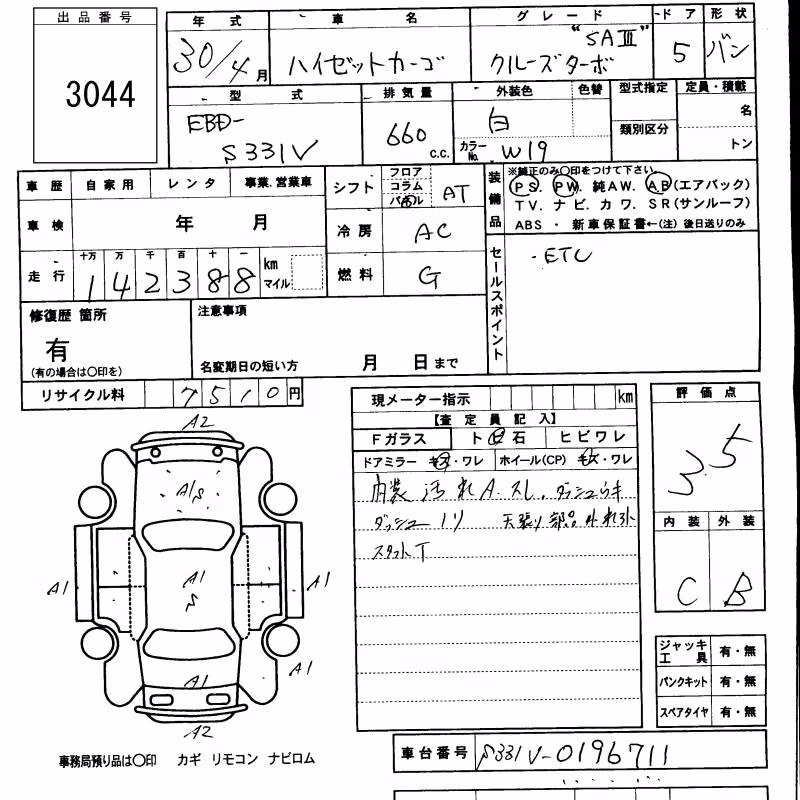 出品番号
3044
年式 車名 グレード ドア 形状
30/4月 ハイゼットカーゴ "SAⅢ" クルーズターボ 5 バン
型式 排気量 外装色 色替 型式指定 定員・積載
EBD-
S331V 660 c.c. 白 類別区分 名
カラーNo. W19 トン
車歴 自家用 レンタ 事業、営業車 シフト フロア コラム パネル AT
装備品 ※純正のみ〇印をつけて下さい。
PS. PW. 純AW. AB(エアバック)
TV. ナビ. カワ. SR(サンルーフ)
ABS ・ 新車保証書←(注)後日送りのみ
車検 年 月 冷房 AC
走行 十万 万 千 百 十 一 km マイル 燃料 G
142388
セールスポイント ・ETC
修復歴 箇所 注意事項
有
(有の場合は〇印を) 名変期日の短い方 月 日まで
リサイクル料 7510円
現メーター指示 km
【査定員記入】
Fガラス ト 石 ヒビワレ
ドアミラー キズ・ワレ ホイール(CP) キズ・ワレ
内装汚れA.スレ.ダッシュウキ
ダッシュノリ 天張り部品外れ
スタットT
評価点
3.5
内装 外装
C B
ジャッキ工具 有・無
パンクキット 有・無
スペアタイヤ 有・無
A2
A/S
A1
A1
S
A1
A1
A1
A2
事務局預り品は〇印 カギ リモコン ナビロム
車台番号 S331V-0196711